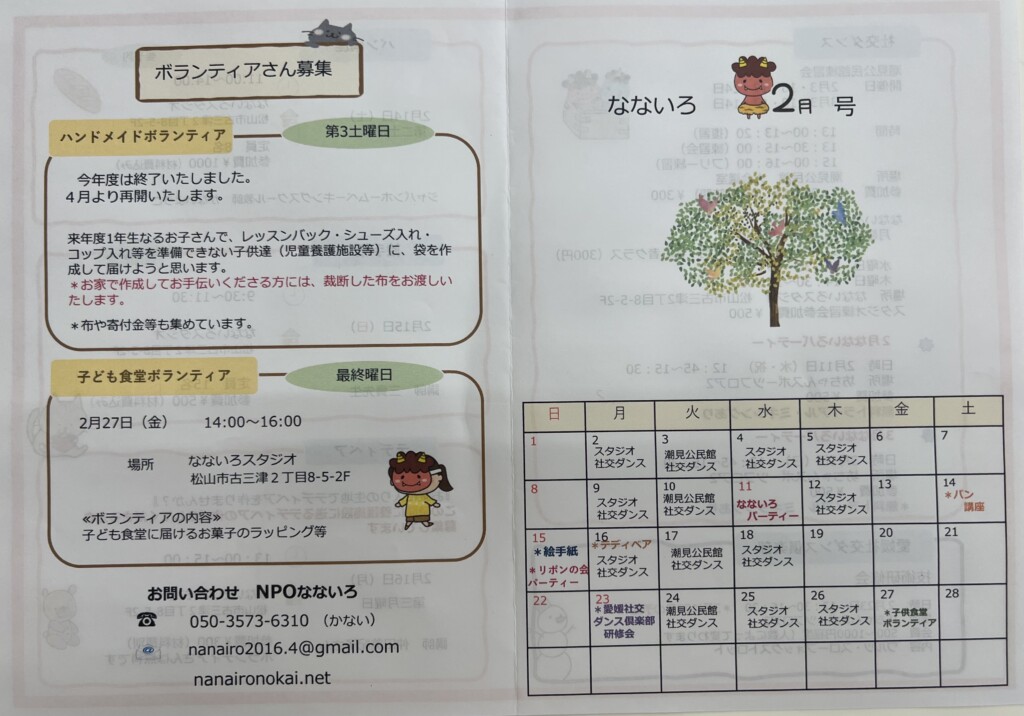 ボランティアさん募集
ハンドメイドボランティア
第3土曜日
今年度は終了いたしました。
４月より再開いたします。
来年度1年生なるお子さんで、レッスンバック・シューズ入れ・
コップ入れ等を準備できない子供達（児童養護施設等）に、袋を作
成して届けようと思います。
＊お家で作成してお手伝いくださる方には、裁断した布をお渡しい
たします。
＊布や寄付金等も集めています。
子ども食堂ボランティア
最終曜日
2月27日（金） 14:00～16:00
場所 なないろスタジオ
松山市古三津２丁目8-5-2F
≪ボランティアの内容≫
子ども食堂に届けるお菓子のラッピング等
お問い合わせ NPOなないろ
☎ 050-3573-6310 （かない）
nanairo2016.4@gmail.com
nanaironokai.net
なないろ 2月 号
日 月 火 水 木 金 土
1 2 3 4 5 6 7
スタジオ 潮見公民館 スタジオ スタジオ
社交ダンス 社交ダンス 社交ダンス 社交ダンス
8 9 10 11 12 13 14
スタジオ 潮見公民館 なないろ スタジオ ＊パン
社交ダンス 社交ダンス パーティー 社交ダンス 講座
15 16 17 18 19 20 21
＊絵手紙 ＊テディベア
スタジオ 潮見公民館 スタジオ
＊リボンの会 社交ダンス 社交ダンス 社交ダンス
パーティー
22 23 24 25 26 27 28
＊愛媛社交 潮見公民館 スタジオ スタジオ ＊子供食堂
ダンス倶楽部 社交ダンス 社交ダンス 社交ダンス ボランティア
研修会